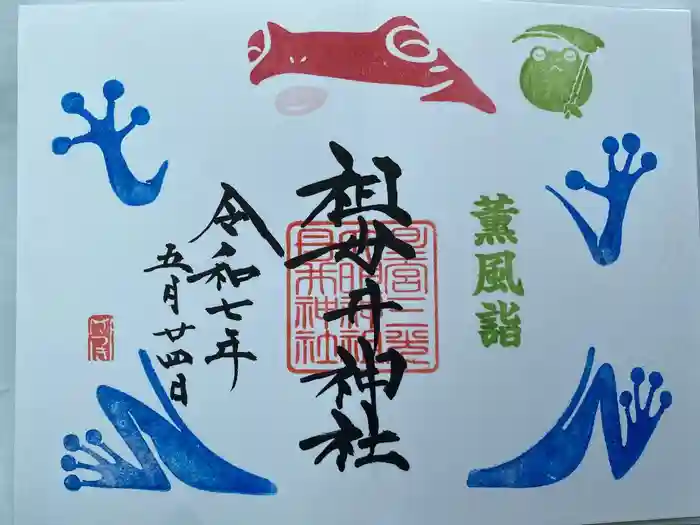 薫風詣
祖母井神社
令和七年
五月廿四日